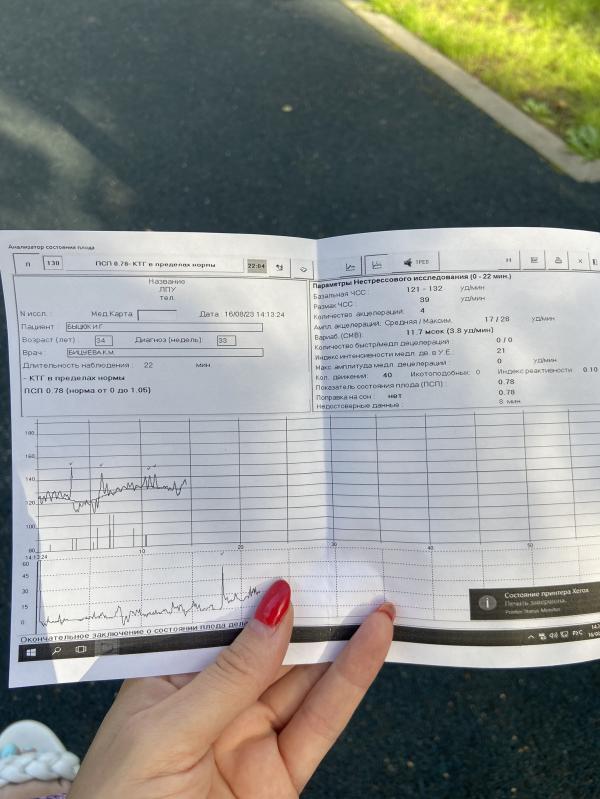 Анализатор состояния плода
П 130 ПСП 0.78- КТГ в пределах нормы 22:04
ТРЕВ Н
Название
ЛПУ
тел.
N иссл. : Мед.Карта Дата 16/08/23 14:13:24
Пациент БЫЦЮК И.Г
Возраст (лет) 34 Диагноз (недель) 33
Врач БИЦУЕВА К.М.
Длительность наблюдения : 22 мин
- КТГ в пределах нормы
ПСП 0.78 (норма от 0 до 1.05)
Параметры Нестрессового исследования (0 - 22 мин.)
Базальная ЧСС : 121 - 132 уд/мин
Размах ЧСС : 39 уд/мин
Количество акцелераций: 4
Ампл. акцелераций: Средняя / Максим. 17 / 28 уд/мин
Вариаб. (СМВ): 11.7 мсек (3.8 уд/мин)
Количество быстр/медл децелераций 0 / 0
Индекс интенсивности медл. дв. в У.Е. : 21
Макс амплитуда медл. децелераций : 0 уд/мин
Кол. движений: 40 Икотоподобных: 0 Индекс реактивности 0.10
Показатель состояния плода (ПСП) : 0.78
Поправка на сон : нет 0.78
Недостоверные данные : 8 мин.
180
160
140
120
100
80
14:13:24
10 20 30 40 50
60
45
30
15
0
Окончательное заключение о состоянии плода дела
Состояние принтера Xerox
Печать завершена.
Printer Status Monitor
РУС